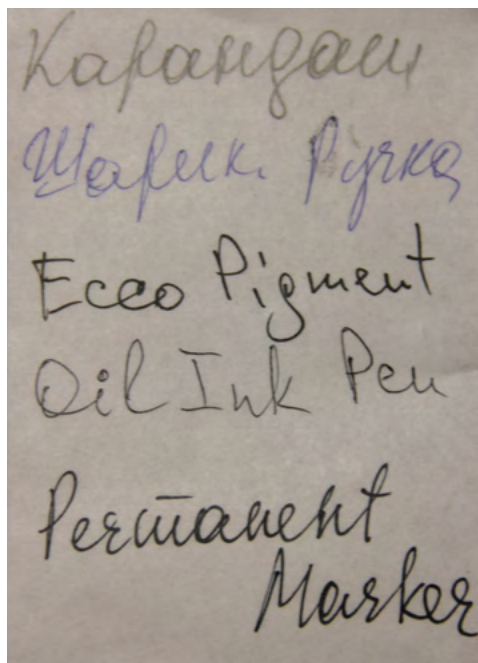 Карандаш
Шарик. Ручка
Ecco Pigment
Oil Ink Pen
Permanent
Marker